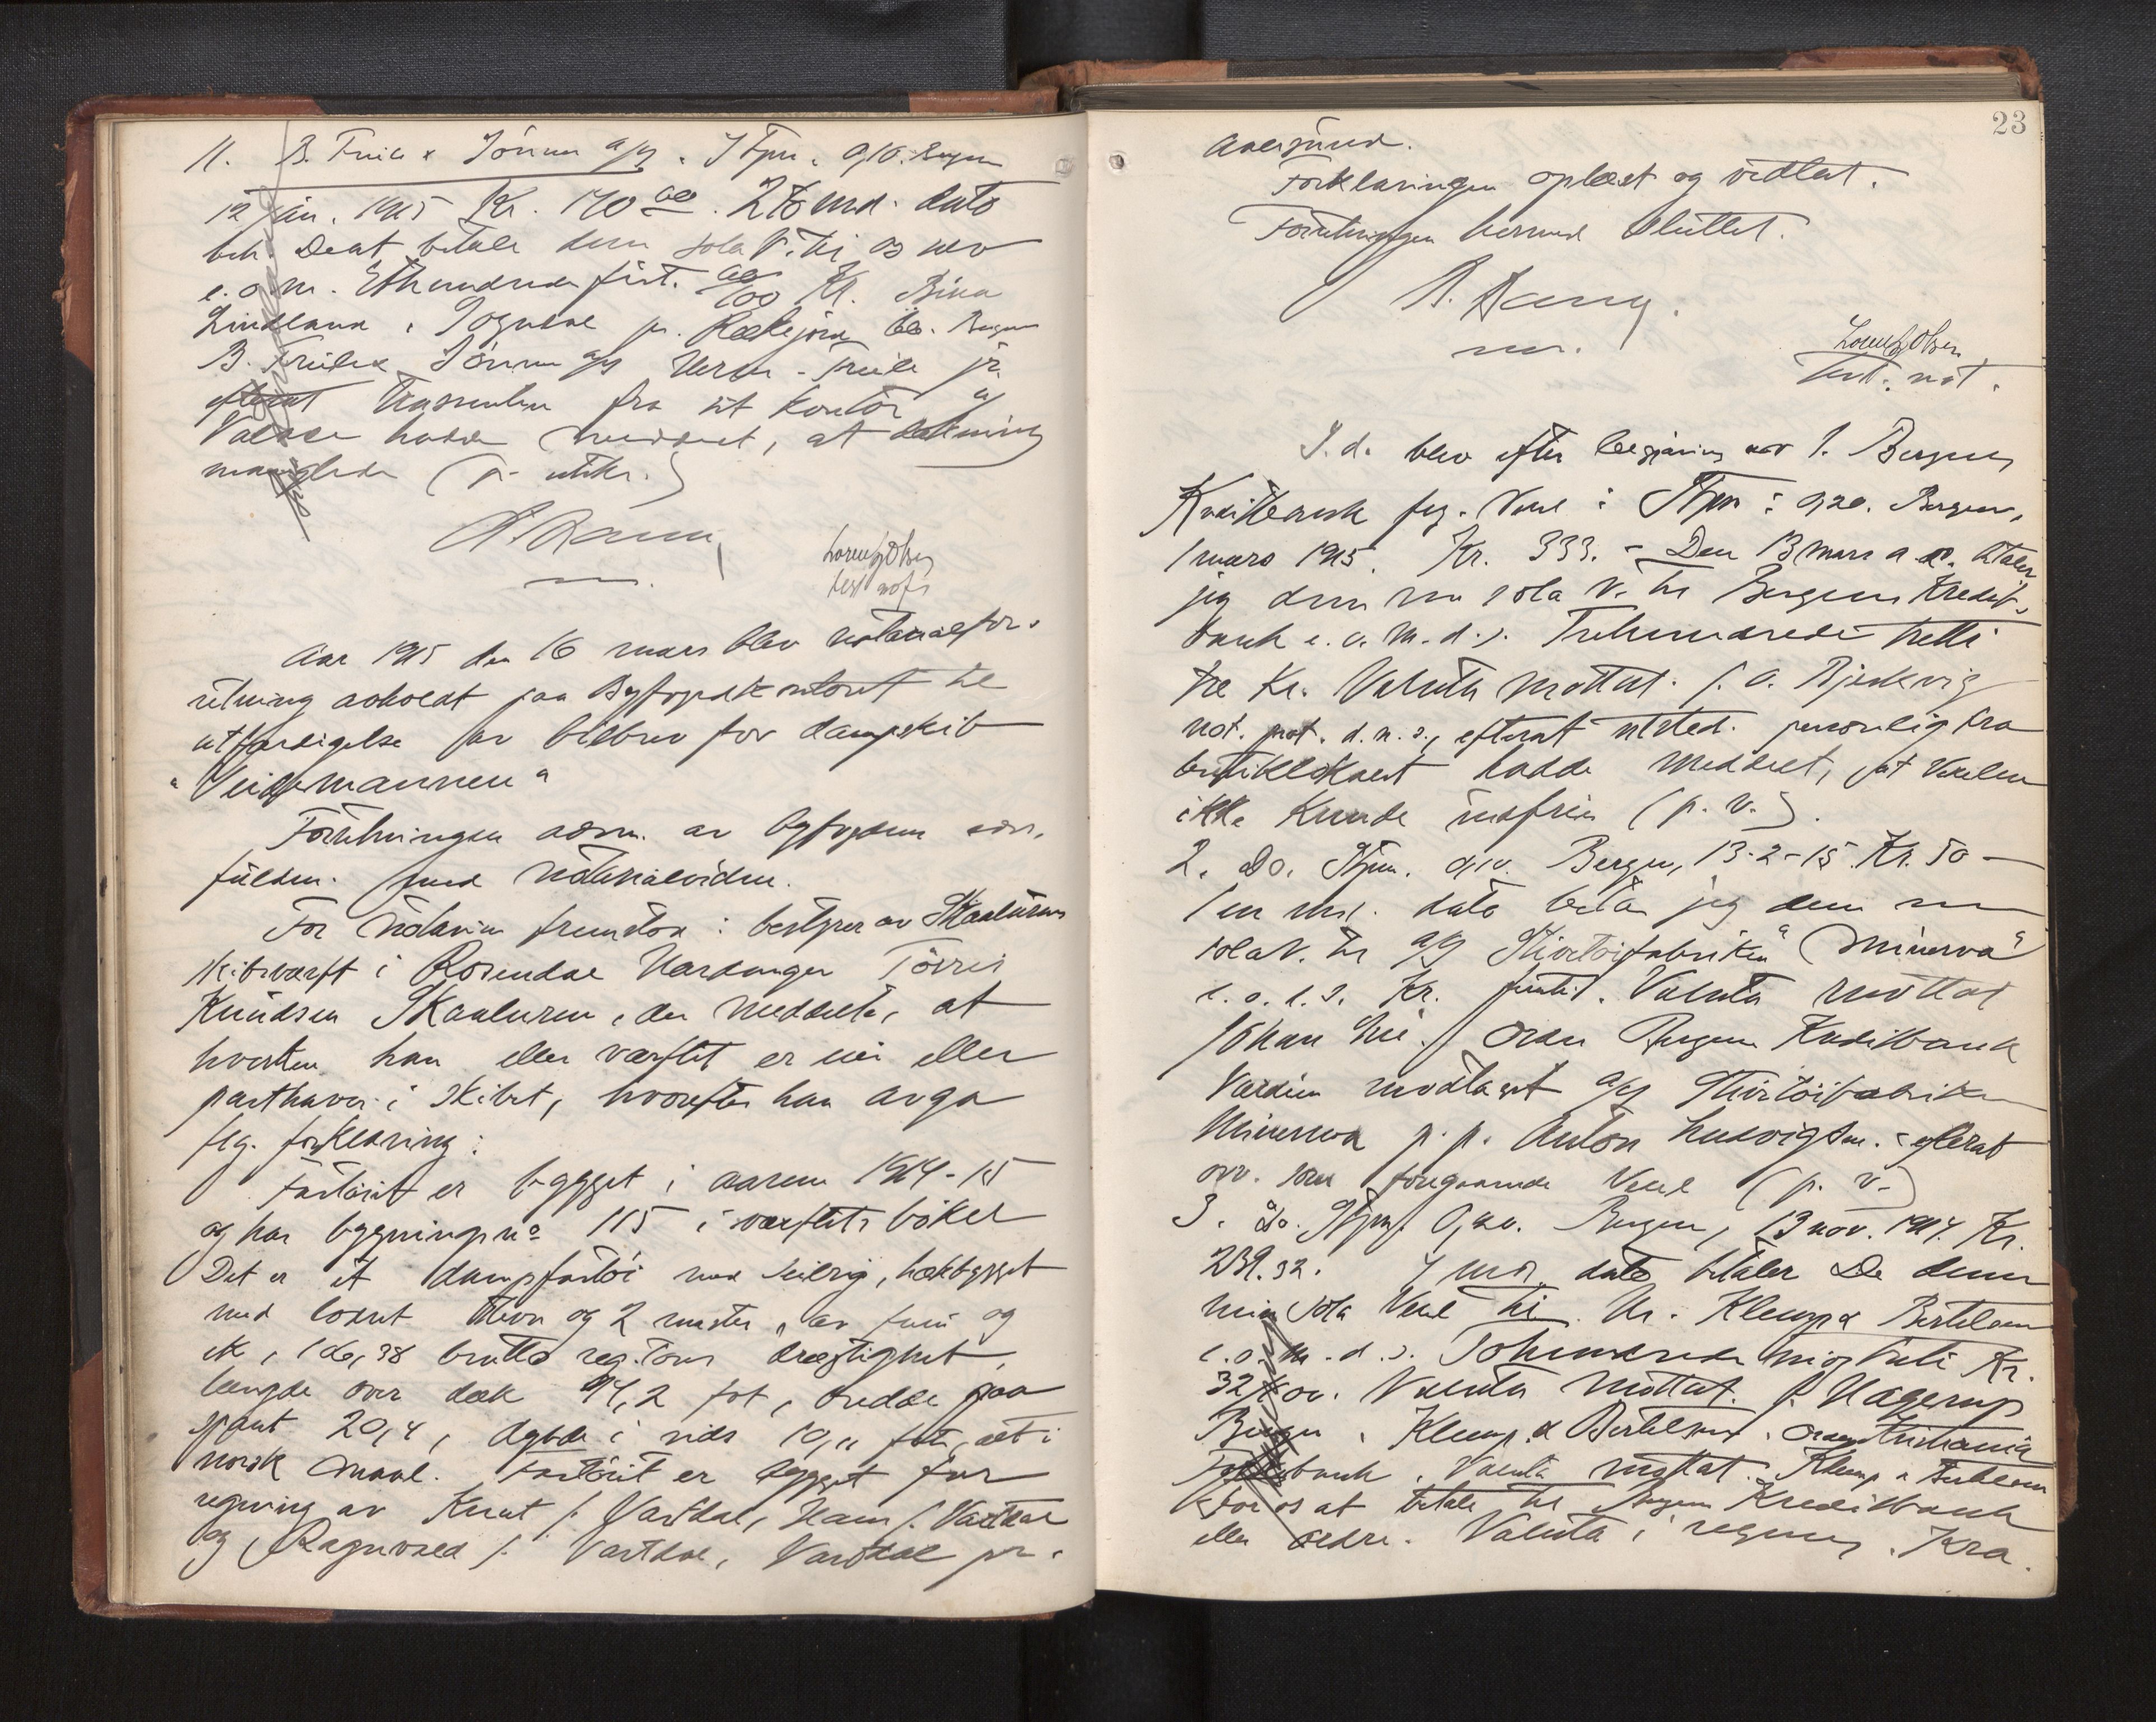 11. B. Friele & Sönner a/s. Stpm. 0,10. Bergen
12 jan. 1915 Kr. 140 00. 2 to md. dato
beh. De at betale denne sola V. til os selv
e. o. m. Ethundrede firt. 00/100 Kr.
Lindland,
B. Friele & Sönner a/s Herm. Friele jr.
efterat Trassenten fra sit kontor
hadde meddelt, at dækning
manglede (p. utkr.)
Lorentz Olsen
test not.
Aar 1915 den 16 mars blev notarialfor-
retning avholdt paa Byfogdkontoret til
utfærdigelse av bilbrev for dampskib
"Veidemannen"
Forretningen adm. av byfogdens
fuldm. med notarialvidne.
For notarius fremstod: bestyrer av Skaalurens
skibsværft i Rosendal Hardanger Törris
Knudsen Skaaluren, der meddelte, at
hverken han eller værftet er eier eller
parthaver i skibet, hvorefter han avga
flg. forklaring:
Fartöiet er bygget i aarene 1914-15
og har bygningsno 115 i værftets böker
Det er et dampfartöi med seilrig, hækbygget
med lodret stevn og 2 master, av furu og
ek, 186,38 brutto reg. tons drægtighet,
længde over dæk 94,2 fot, bredde paa
spant 20,4, dybde i rids 10,11 fot, alt i
norsk maal. Fartöiet er bygget for
regning av Knut J. Vartdal, Hans J. Vartdal
og Ragnvald J. Vartdal, Vartdal pr.
23
Aalesund.
Forklaringen oplæst og vedtat.
Forretningen hermed sluttet.
Lorentz Olsen
Test. not.
S. d. blev efter begjæring av 1. Bergens
Kreditbank flg. Vexel: Stpm: 0,20. Bergen,
1 mars 1915. Kr. 333. - Den 13 mars a. c. betaler
jeg denne min sola V. til Bergens Kredit-
bank e. o. m. d. s. Trehundrede tretti
tre Kr. Valuta mottat. J. O. Bjerkvig
not. prot. d. n. s., efterat utsted. personlig fra
butiklokalet hadde meddelt, at Vexelen
ikke kunde indfries (p. v.).
2. Do. Stpm. 0,10. Bergen, 13-2-15. Kr. 50 -
1 en md. dato betaler jeg denne min
sola V. til a/s Skotöifabriken "Minerva"
e. o. d. s. Kr. femti. Valuta mottat
Johan Order Bergens Kreditbank
Værdien modtaget a/s Skotöifabriken
Minerva p. p. Anton Ludvigsen. - efterat
ovv. som foregaaende Vexel (p. v.)
3. Do. Stpm. 0,20. Bergen, 13 nov. 1914. Kr.
239.32. 4 md. dato betaler De denne
min sola Vexel til Hr. Klemp & Bertelsen
e. o. m. d. s. Tohundrede Kr.
32 öre. Valuta mottat. J. Hagerup
Bergen. Klemp & Bertelsen. Order Kristiania
Valuta mottat. Klemp & Bertelsen
For os at betale til Bergens Kreditbank
eller ordre. Valuta i regning. Kra.